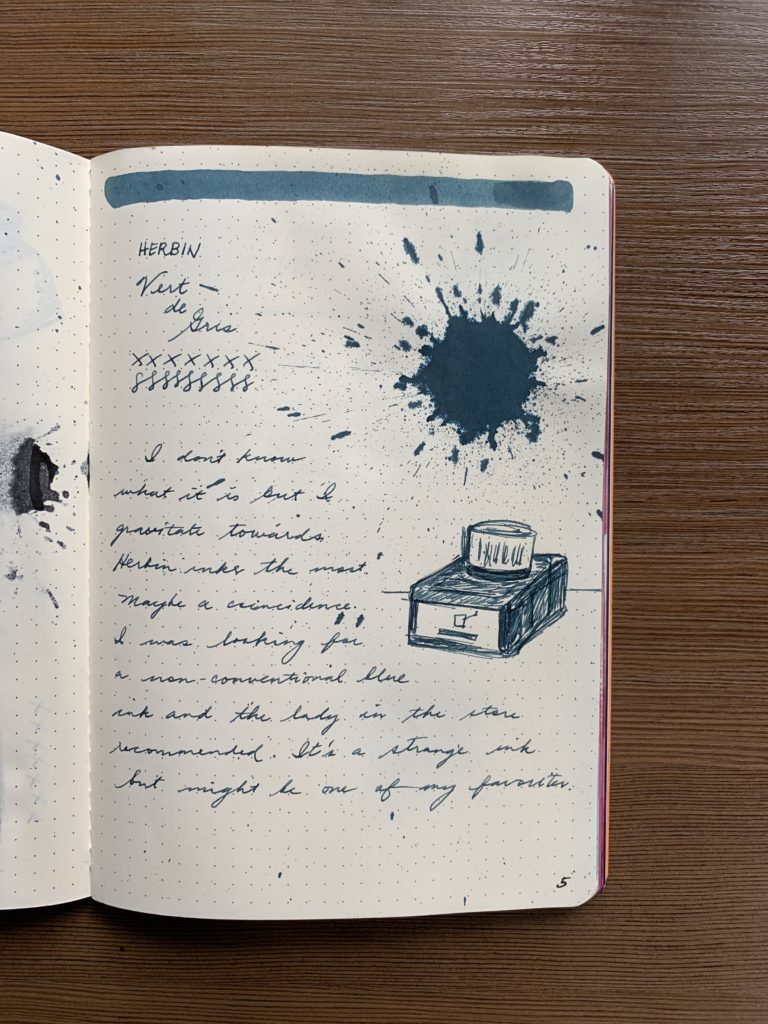 HERBIN
Vert –
de
Gris
xxxxxxx
8888888888
I don't know
what it is but I
gravitate towards
Herbin inks the most.
Maybe a coincidence.
I was looking for
a non-conventional blue
ink and the lady in the store
recommended. It's a strange ink
but might be one of my favorites.
5